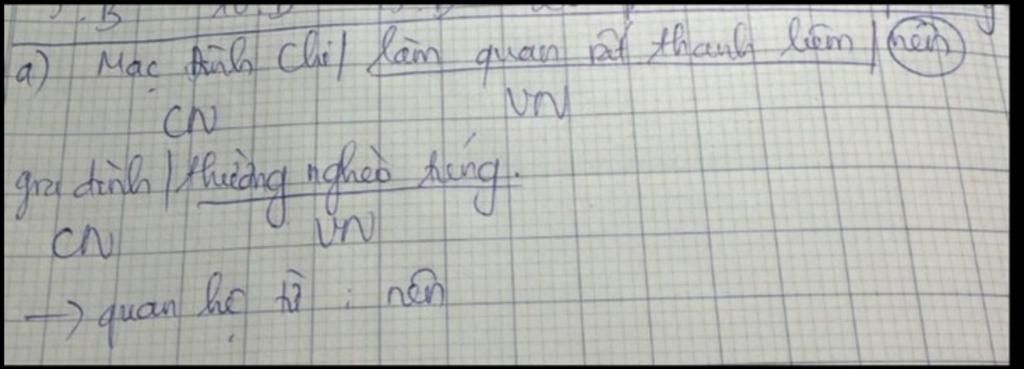 a) Mạc Đĩnh Chi | làm quan rất thanh liêm | nên
CN VN
gia đình | thường nghèo túng.
CN VN
→ quan hệ từ : nên